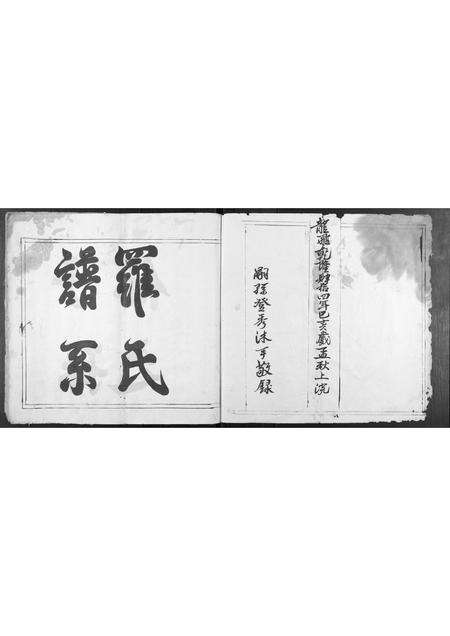 龍飛乾隆肆拾四年己亥歲孟秋上浣
嗣孫登秀沐手敬錄
羅氏
譜系